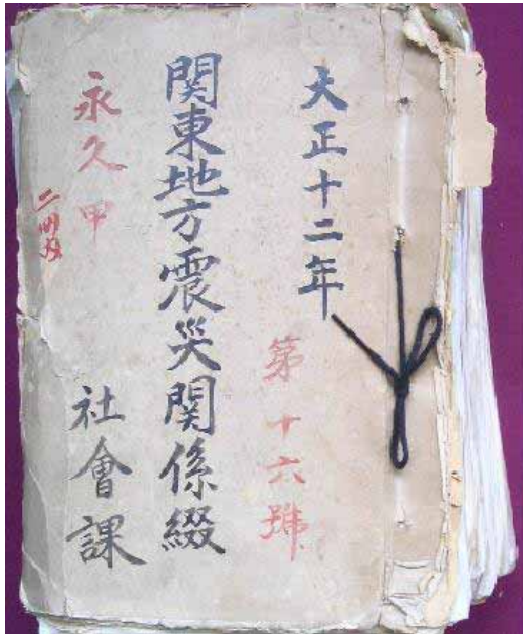 大正十二年
第十六號
関東地方震災関係綴
永久甲
社會課